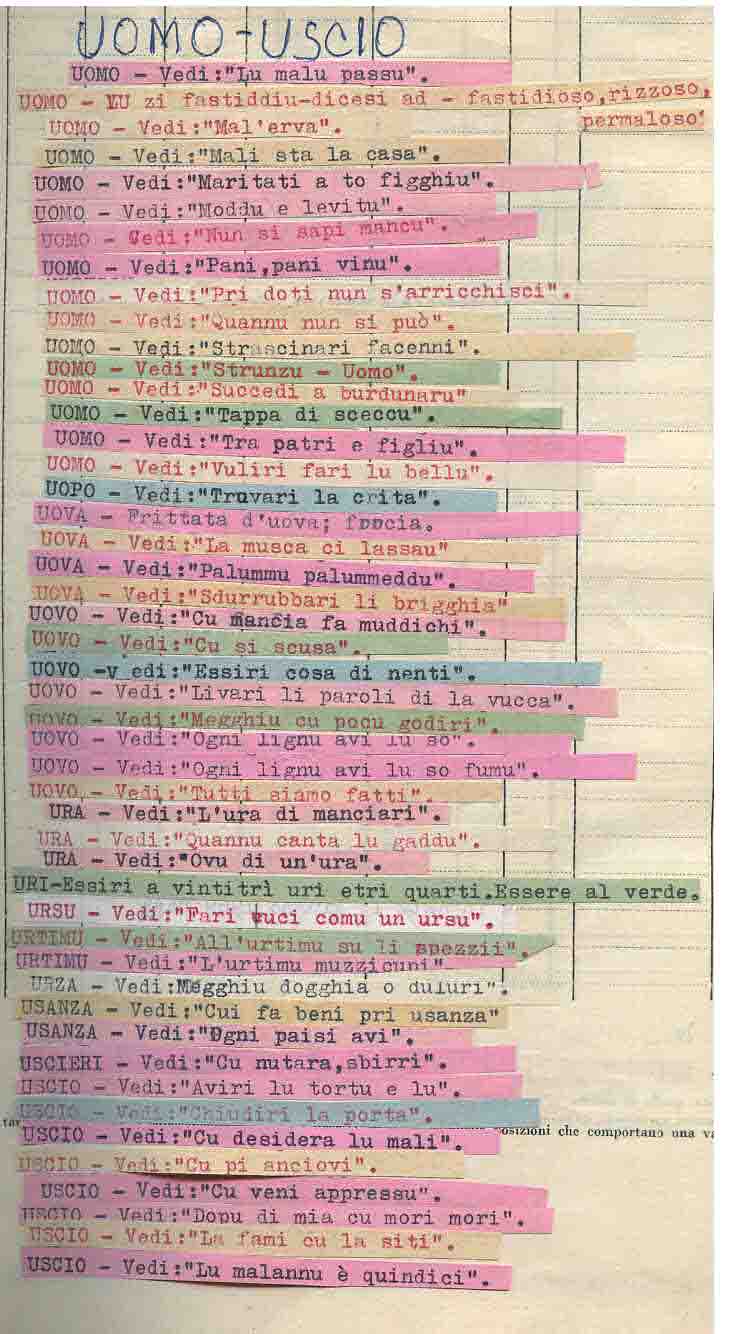 UOMO-USCIO
UOMO - Vedi:"Lu malu passu".
UOMO - LU zi fastiddiu-dicesi ad - fastidioso,rizzoso,
permaloso'
UOMO - Vedi:"Mal'erva".
UOMO - Vedi:"Mali sta la casa".
UOMO - Vedi:"Maritati a to figghiu".
UOMO - Vedi:"Moddu e levitu".
UOMO - Vedi:"Nun si sapi mancu".
UOMO - Vedi:"Pani,pani vinu".
UOMO - Vedi:"Pri doti nun s'arricchisci".
UOMO - Vedi:"Quannu nun si può".
UOMO - Vedi:"Strascinari facenni".
UOMO - Vedi:"Strunzu - Uomo".
UOMO - Vedi:"Succedi a burdunaru"
UOMO - Vedi:"Tappa di sceccu".
UOMO - Vedi:"Tra patri e figliu".
UOMO - Vedi:"Vuliri fari lu bellu".
UOPO - Vedi:"Truvari la crita".
UOVA - Frittata d'uova;
UOVA - Vedi:"La musca ci lassau"
UOVA - Vedi:"Palummu palummeddu".
UOVA - Vedi:"Sdurrubbari li brigghia"
UOVO - Vedi:"Cu mancia fa muddichi".
UOVO - Vedi:"Cu si scusa".
UOVO -v edi:"Essiri cosa di nenti".
UOVO - Vedi:"Livari li paroli di la vucca".
UOVO - Vedi:"Megghiu cu pocu godiri".
UOVO - Vedi:"Ogni lignu avi lu so".
UOVO - Vedi:"Ogni lignu avi lu so fumu".
UOVO - Vedi:"Tutti siamo fatti".
URA - Vedi:"L'ura di manciari".
URA - Vedi:"Quannu canta lu gaddu".
URA - Vedi:"Ovu di un'ura".
URI-Essiri a vintitrì uri etri quarti.Essere al verde.
URSU - Vedi:"Fari vuci comu un ursu".
URTIMU - Vedi:"All'urtimu su li spezzii".
URTIMU - Vedi:"L'urtimu muzzicuni".
URZA - Vedi:Megghiu dogghia o duluri".
USANZA - Vedi:"Cui fa beni pri usanza"
USANZA - Vedi:"Ogni paisi avi".
USCIERI - Vedi:"Cu nutara,sbirri".
USCIO - Vedi:"Aviri lu tortu e lu".
USCIO - Vedi:"Chiudiri la porta".
osizioni che comportano una va
USCIO - Vedi:"Cu desidera lu mali".
USCIO - Vedi:"Cu pi anciovi".
USCIO - Vedi:"Cu veni appressu".
USCIO - Vedi:"Dopu di mia cu mori mori".
USCIO - Vedi:"La fami cu la siti".
USCIO - Vedi:"Lu malannu è quindici".